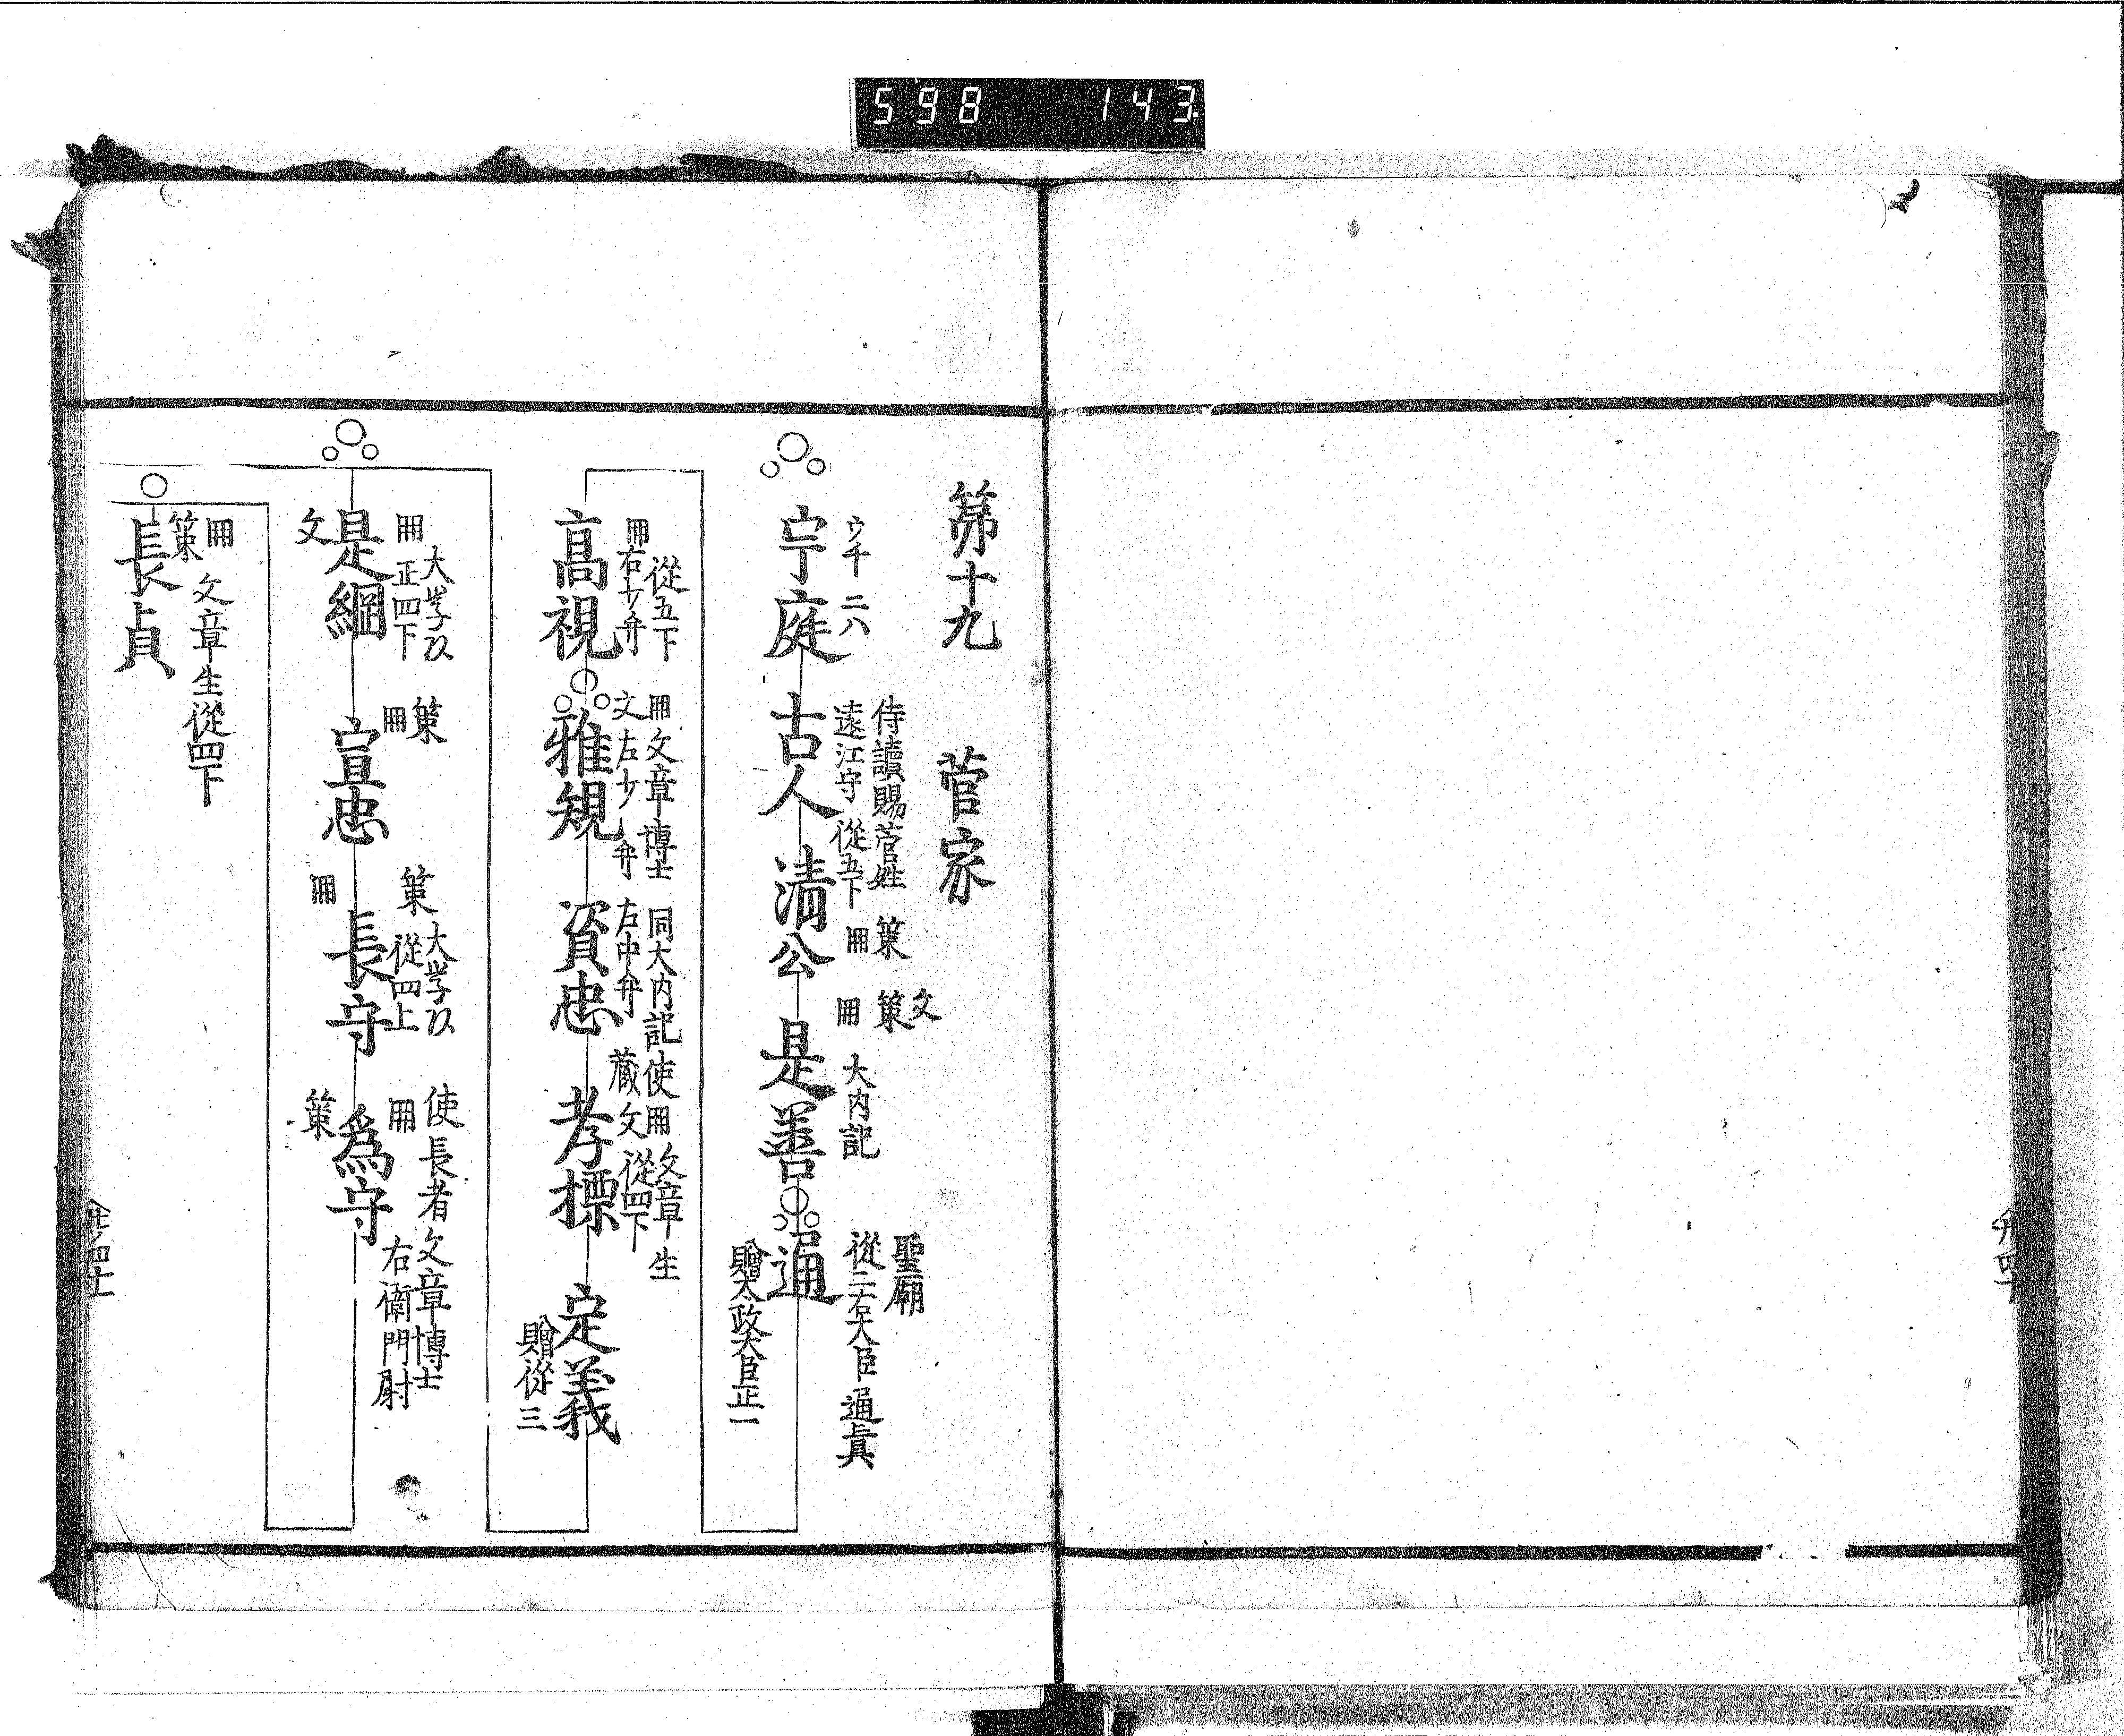 598 143
第十九 菅家
宇庭 古人 清公 是善 道
ウ千 二八
侍讀賜菅姓
遠江守 從五下
策 冊
文 策 冊 大内記
聖廟
從二右大臣 道真
贈太政大臣正一
高視 雅規 資忠 孝標 定義
冊 從五下
右少弁
冊 文章博士
文 左少弁
同大内記使
右中弁 藏
冊 文章生
文 從四下
贈從三
是綱 宣忠 長守 爲守
冊 大学頭
正四下
文
策 冊
策 大学頭
從四上
冊
使長者文章博士
冊 右衛門尉
策
長貞
冊
策
文章生從四下